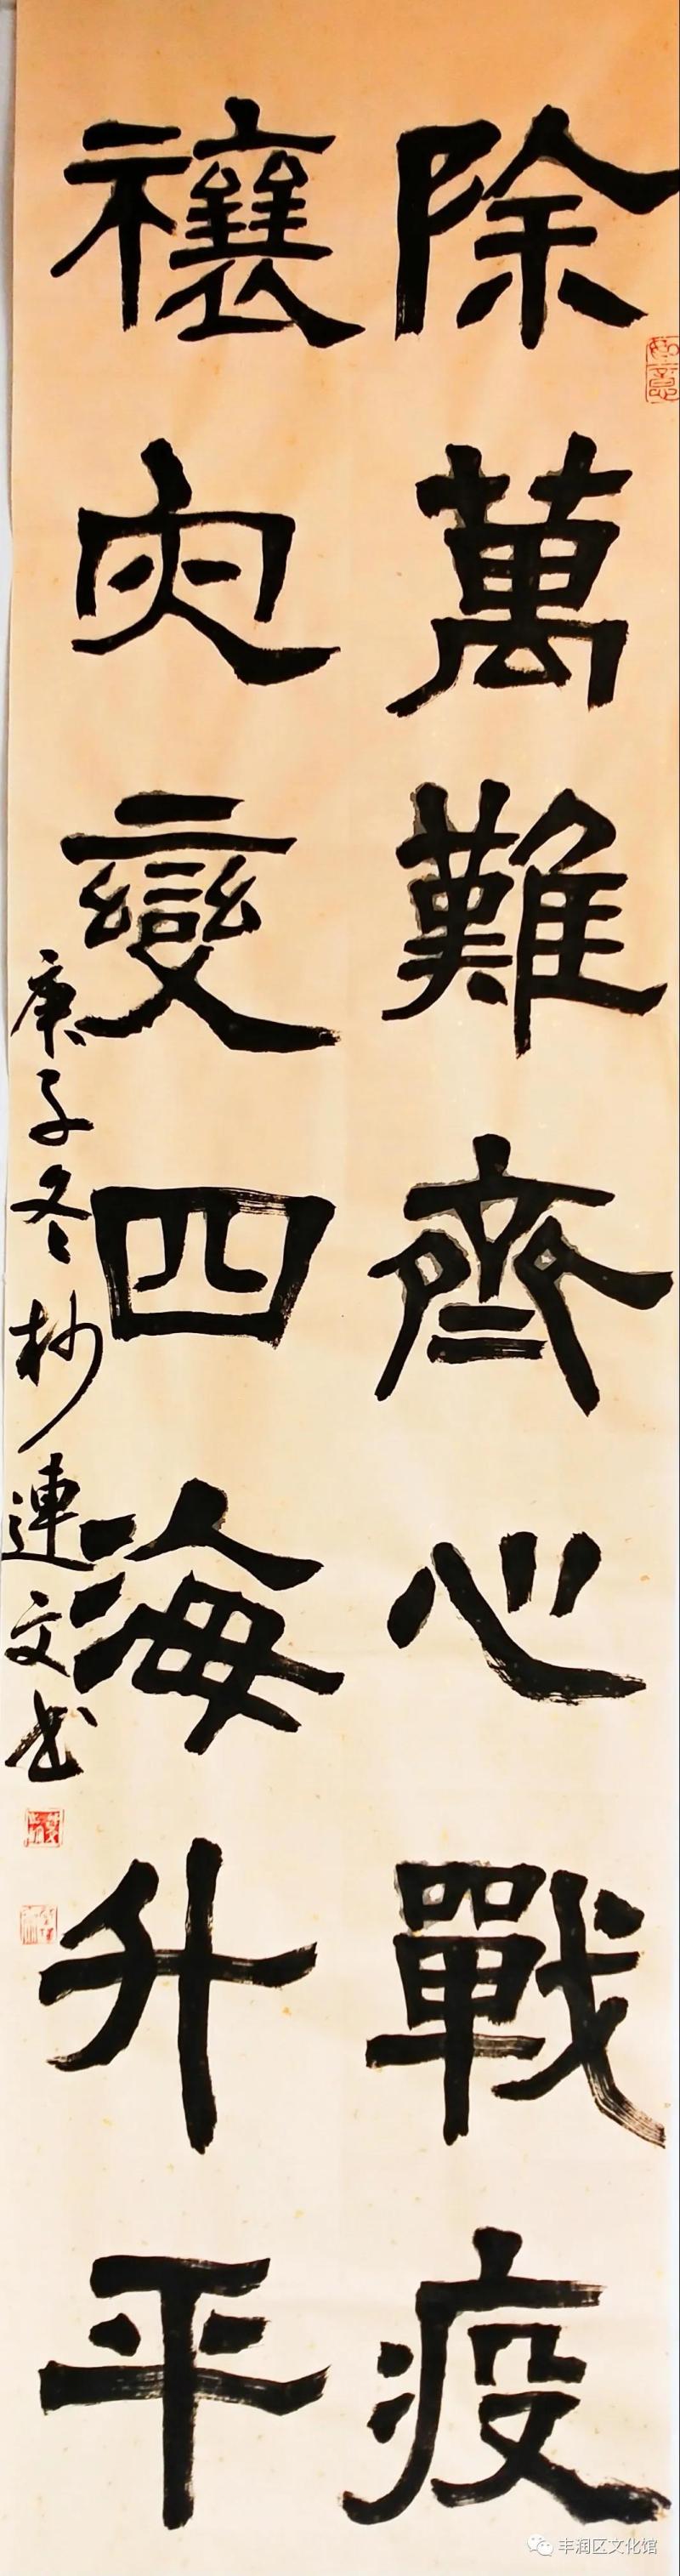 除萬難齊心戰疫
禳灾變四海升平
庚子冬杪連文书
如意
丰润区文化馆